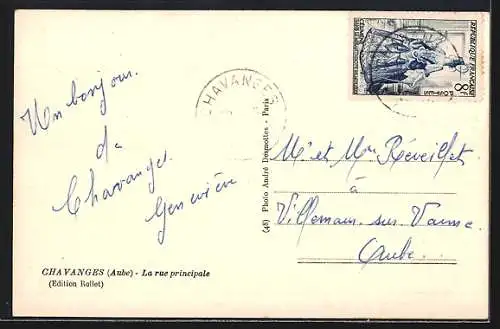 Un bonjour
de
Chavanges.
Geneviève
CHAVANGES (Aube) - La rue principale
(Edition Rallet)
(48) Photo André Desmottes - Paris
CHAVANGES
REPUBLIQUE FRANÇAISE
8F
Mr et Mme Réveillet
à
Villemaur sur Vanne
Aube.